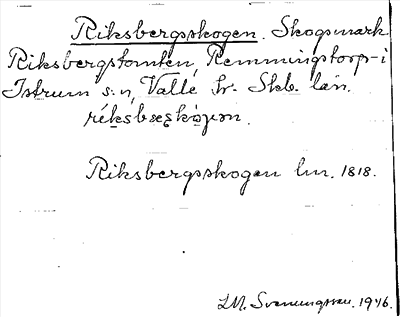 Riksbergsskogen. Skogsmark
Riksbergstomten, Remmingstorp-i
Istrum s:n, Valle hr. Skb. län.
Riksbergsskogen lm. 1818.
L.M. Svenungsson. 1946.